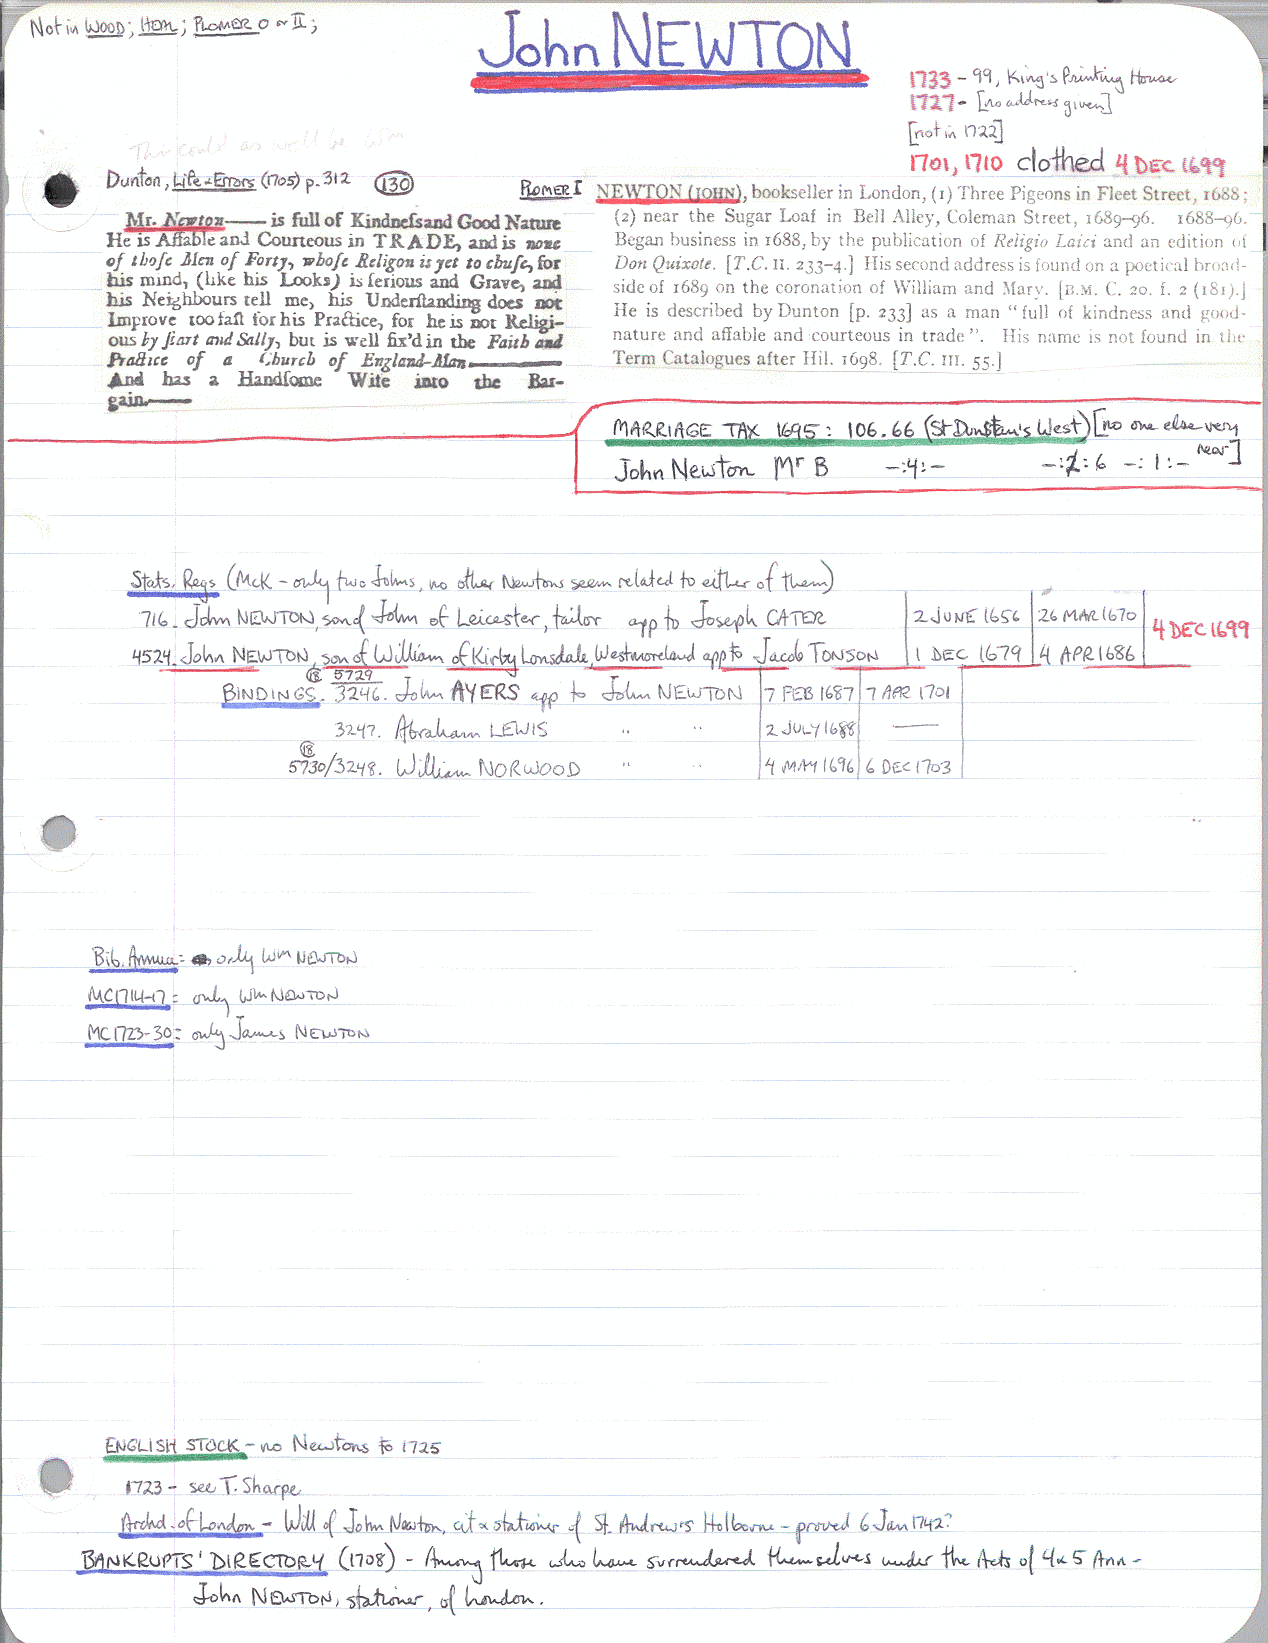 Not in WOOD; HEAL; PLOMER O or II;
John NEWTON
1733 - 99, King's Printing House
1727 - [no address given]
[not in 1722]
1701, 1710 clothed 4 DEC 1699
This could as well be Wm
Dunton, Life & Errors (1705) p. 312 (130)
Mr. Newton—— is full of Kindnefsand Good Nature
He is Affable and Courteous in TRADE, and is none
of thoſe Men of Forty, whoſe Religon is yet to chuſe, for
his mind, (like his Looks) is ſerious and Grave, and
his Neighbours tell me, his Underſtanding does not
Improve too faſt for his Practice, for he is not Religi-
ous by ſtart and Sally, but is well fix'd in the Faith and
Practice of a Church of England-Man——
And has a Handſome Wife into the Bar-
gain.——
PLOMER I NEWTON (JOHN), bookseller in London, (1) Three Pigeons in Fleet Street, 1688;
(2) near the Sugar Loaf in Bell Alley, Coleman Street, 1689-96. 1688-96.
Began business in 1688, by the publication of Religio Laici and an edition of
Don Quixote. [T.C. II. 233-4.] His second address is found on a poetical broad-
side of 1689 on the coronation of William and Mary. [B.M. C. 20. f. 2 (181).]
He is described by Dunton [p. 233] as a man "full of kindness and good-
nature and affable and courteous in trade". His name is not found in the
Term Catalogues after Hil. 1698. [T.C. III. 55.]
MARRIAGE TAX 1695: 106.66 (St Dunstan's West) [no one else very
near]
John Newton Mr B -:4:- -:2:6 -:1:-
Stats. Regs (McK - only two Johns, no other Newtons seem related to either of them)
716. John NEWTON, son of John of Leicester, tailor app to Joseph CATER 2 JUNE 1656 26 MAR 1670
4 DEC 1699
4524. John NEWTON, son of William of Kirby Lonsdale, Westmoreland app to Jacob TONSON 1 DEC 1679 4 APR 1686
(18) 5729
BINDINGS. 3246. John AYERS app to John NEWTON 7 FEB 1687 7 APR 1701
3247. Abraham LEWIS " " 2 JULY 1688 ——
(18)
5730/3248. William NORWOOD " " 4 MAY 1696 6 DEC 1703
Bib. Annua: only Wm NEWTON
MC1714-17: only Wm NEWTON
MC1723-30: only James NEWTON
ENGLISH STOCK - no Newtons to 1725
1723 - see T. Sharpe
Archd. of London - Will of John Newton, cit & stationer of St. Andrew's Holborne - proved 6 Jan 1742?
BANKRUPTS' DIRECTORY (1708) - Among those who have surrendered themselves under the Acts of 4 & 5 Ann -
John NEWTON, stationer, of London.